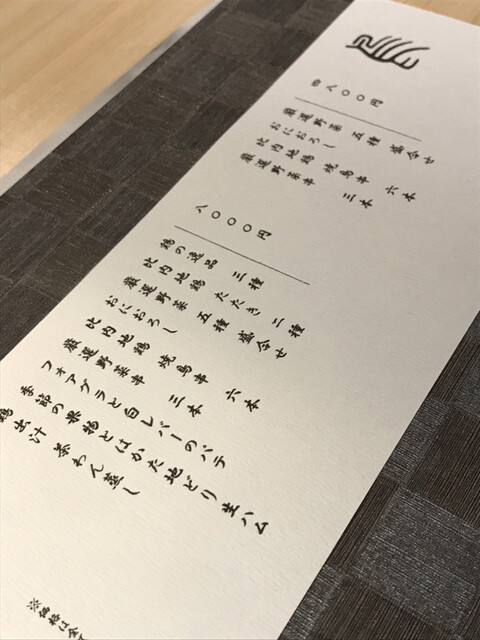 四八〇〇円
厳選野菜 五種 盛合せ
おにおろし
比内地鶏 焼鳥串 六本
厳選野菜串 三本
八〇〇〇円
鶏の逸品 三種
比内地鶏 たたき 二種
厳選野菜 五種 盛合せ
おにおろし
比内地鶏 焼鳥串 六本
厳選野菜串 三本
フォアグラと白レバーのパテ
季節の果物とはかた地どり 生ハム
鶏出汁 茶わん蒸し
※価格は全て